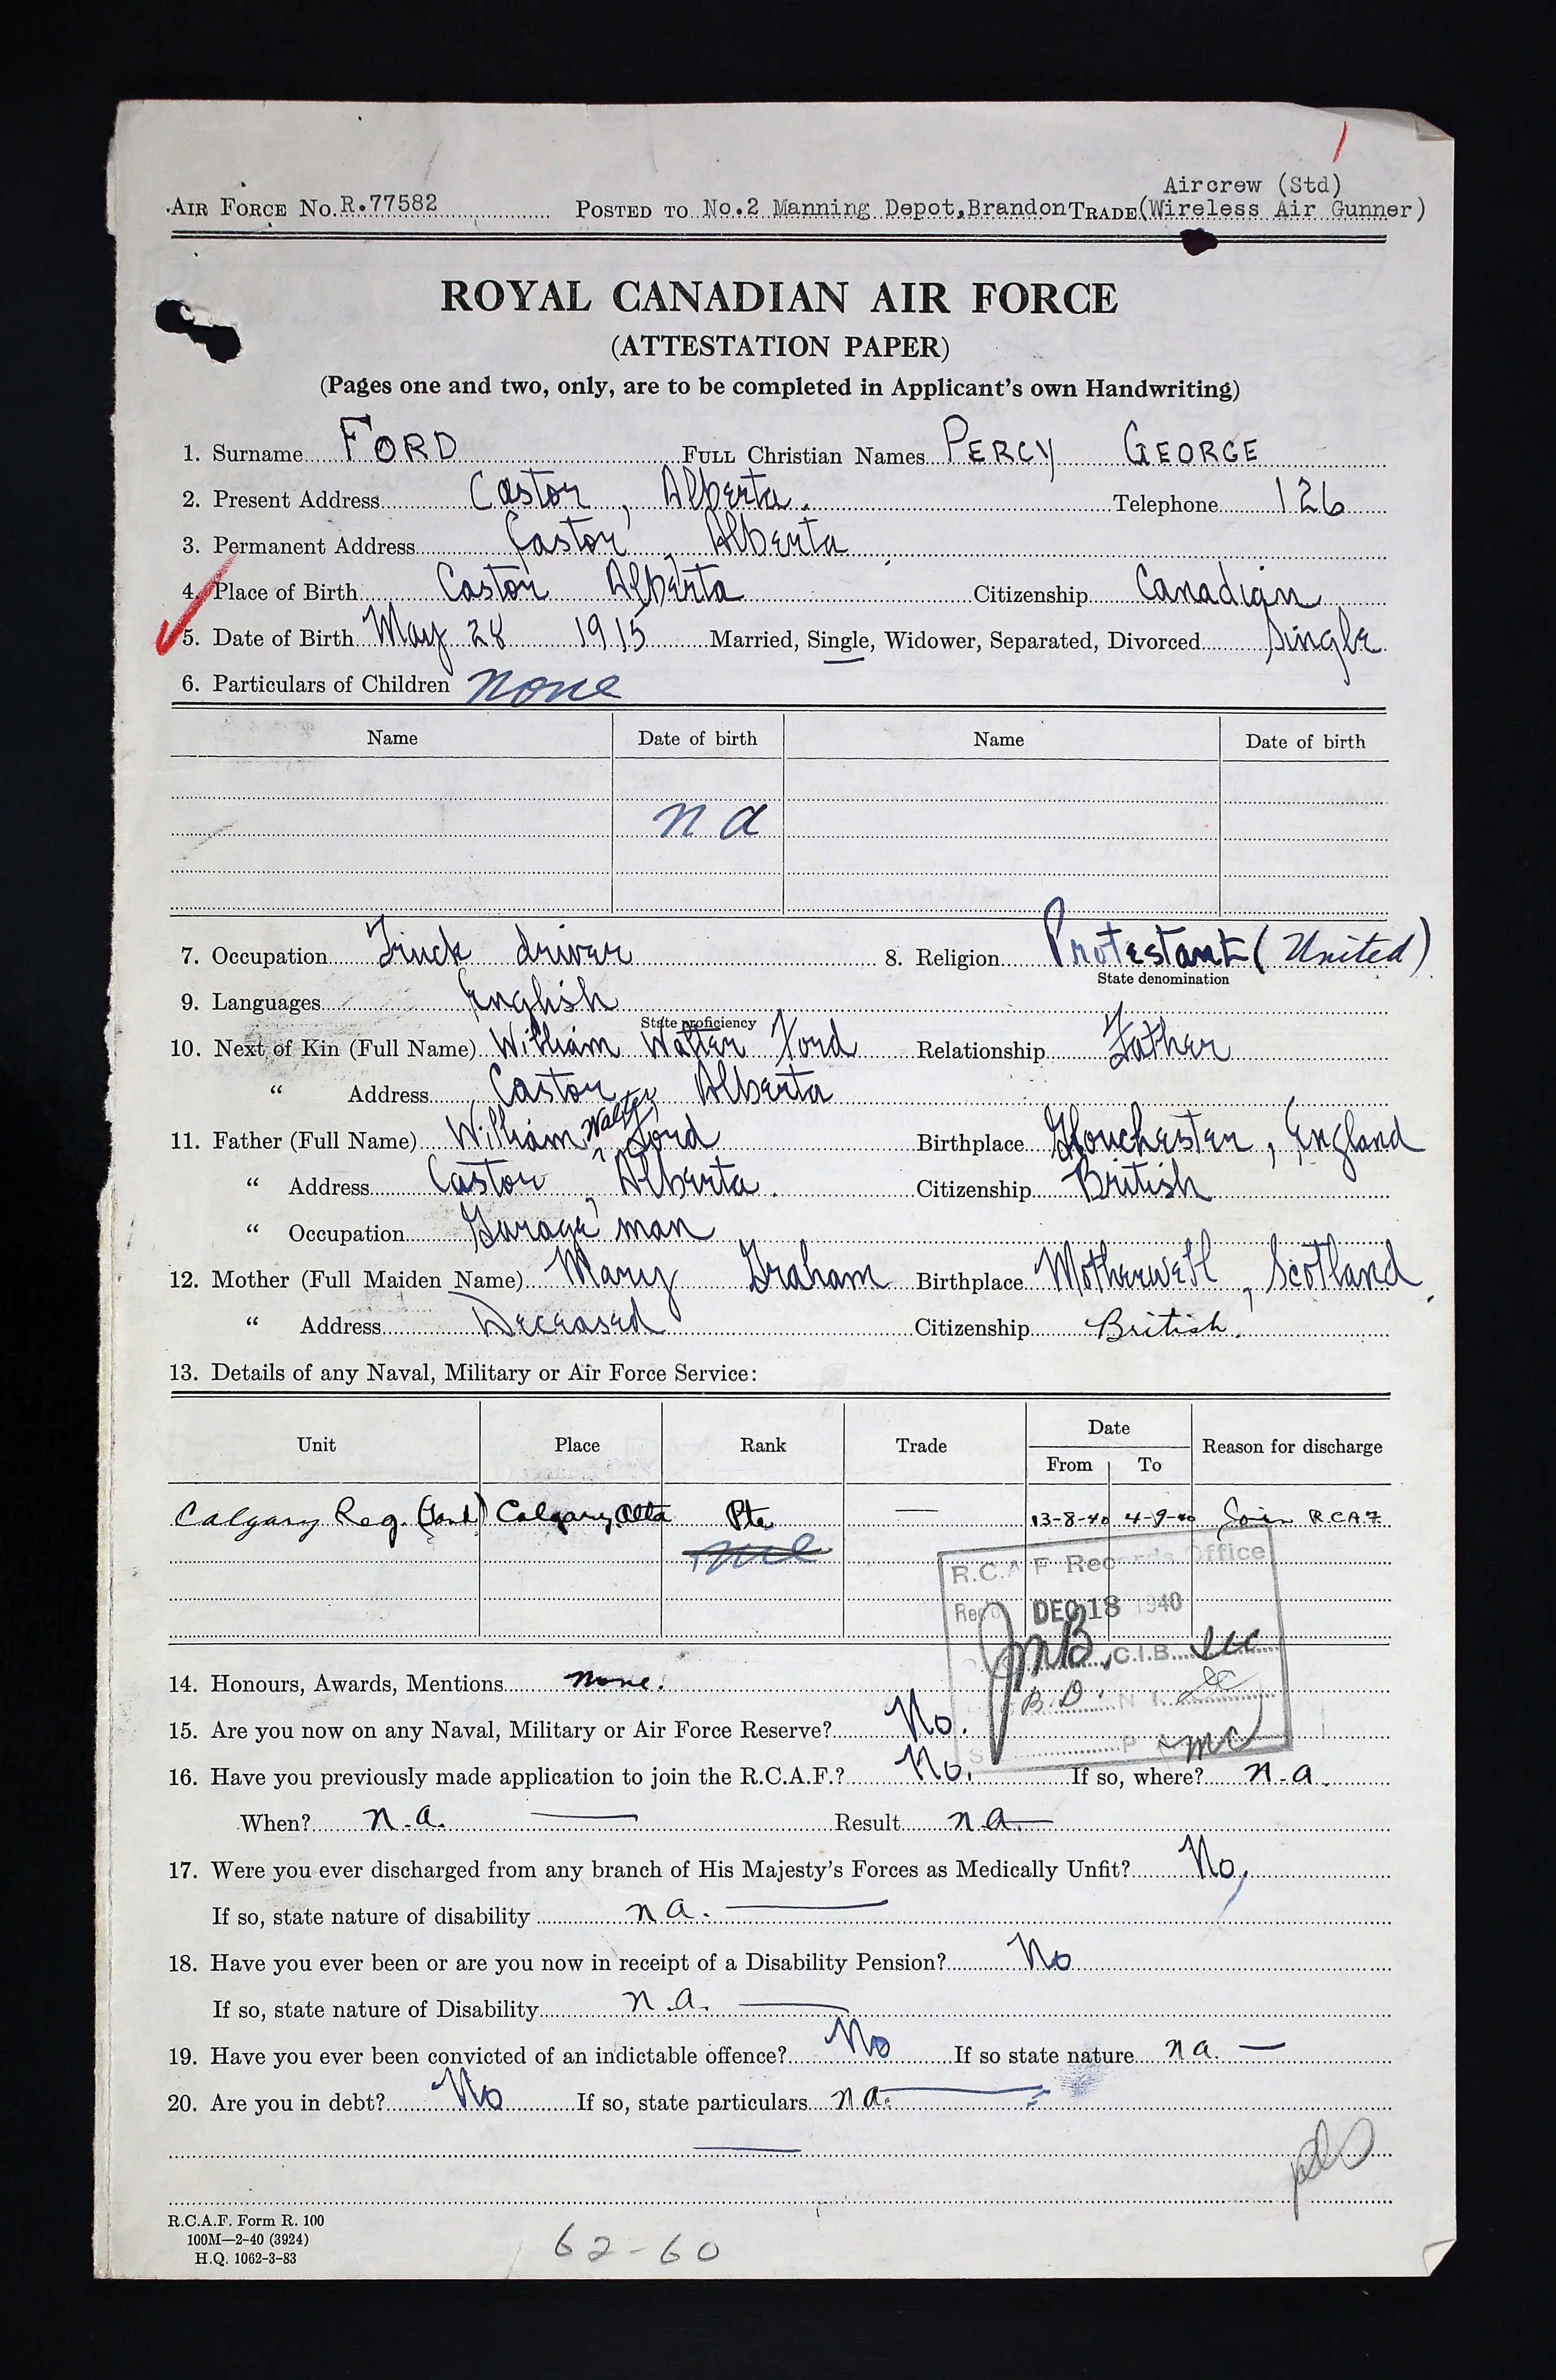 Aircrew (Std)
AIR FORCE No. R.77582 POSTED TO No.2 Manning Depot, Brandon TRADE (Wireless Air Gunner)
ROYAL CANADIAN AIR FORCE
(ATTESTATION PAPER)
(Pages one and two, only, are to be completed in Applicant's own Handwriting)
1. Surname FORD FULL Christian Names PERCY GEORGE
2. Present Address Castor, Alberta. Telephone 126
3. Permanent Address Castor, Alberta
4. Place of Birth Castor Alberta Citizenship Canadian
5. Date of Birth May 28 1915 Married, Single, Widower, Separated, Divorced Single
6. Particulars of Children none
Name Date of birth Name Date of birth
n a
7. Occupation Truck driver 8. Religion Protestant (United)
State denomination
9. Languages English
State proficiency
10. Next of Kin (Full Name) William Walter Ford Relationship Father
" Address Castor, Alberta
11. Father (Full Name) William Walter Ford Birthplace Glouchester, England
" Address Castor, Alberta. Citizenship British
" Occupation Garage man
12. Mother (Full Maiden Name) Mary Graham Birthplace Motherwell, Scotland.
" Address Deceased Citizenship British.
13. Details of any Naval, Military or Air Force Service:
Unit Place Rank Trade Date Reason for discharge
From To
Calgary Reg. (Tank) Calgary, Alta Pte — 13-8-40 4-9-40 Join R.C.A.F.
R.C.A.F Records Office
Rec'd DEC 18 1940
C.I.B.
B.D.
14. Honours, Awards, Mentions none.
15. Are you now on any Naval, Military or Air Force Reserve? No.
16. Have you previously made application to join the R.C.A.F.? No. If so, where? n.a.
When? n.a. — Result n.a. —
17. Were you ever discharged from any branch of His Majesty's Forces as Medically Unfit? No,
If so, state nature of disability n a. —
18. Have you ever been or are you now in receipt of a Disability Pension? No
If so, state nature of Disability n.a. —
19. Have you ever been convicted of an indictable offence? No If so state nature n a. —
20. Are you in debt? No If so, state particulars n a. —
R.C.A.F. Form R. 100
100M—2-40 (3924)
H.Q. 1062-3-83
62-60